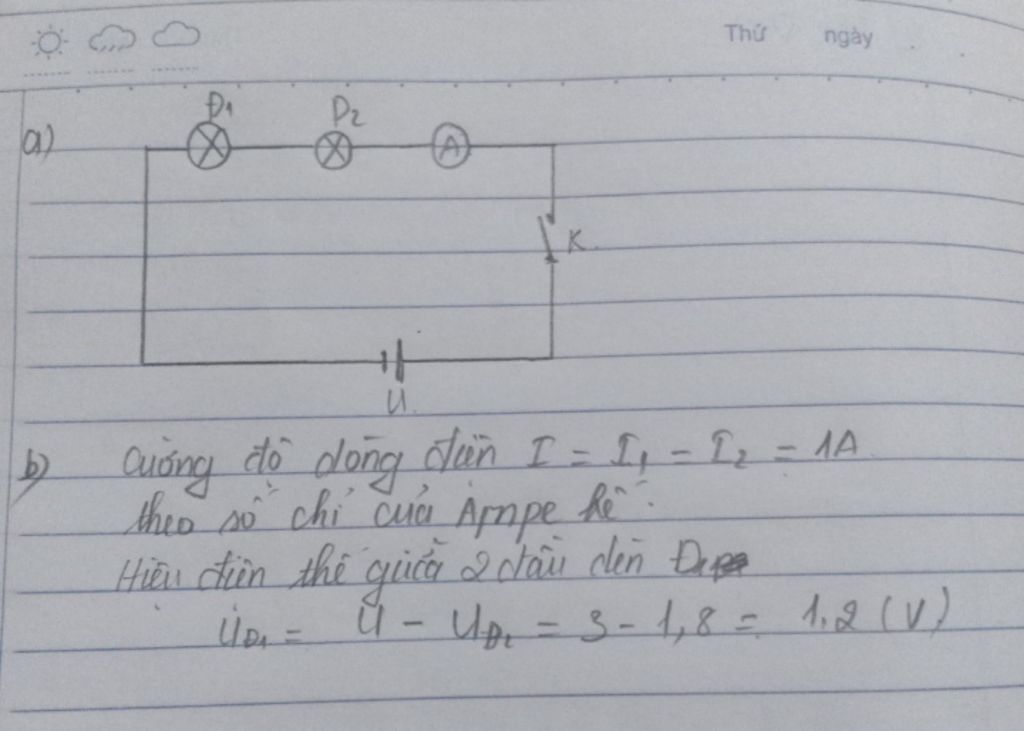 Thứ ngày
a)
Đ1 Đ2
A
K
U
b) Cường độ dòng điện I = I1 = I2 = 1A
theo số chỉ của Ampe kế.
Hiệu điện thế giữa 2 đầu đèn Đ1
UĐ1 = U - UĐ2 = 3 - 1,8 = 1,2 (V)